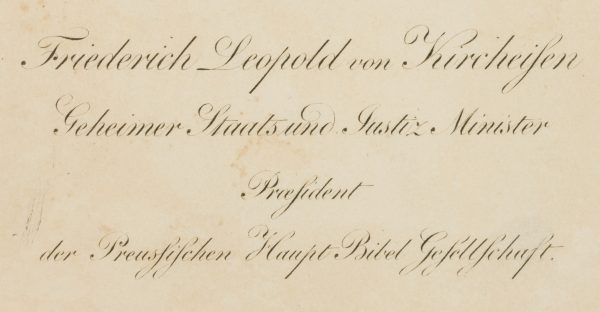 Friederich Leopold von Kircheiſen
Geheimer Staats und Justiz Minister
Præſident
der Preuſſiſchen Haupt Bibel Geſellſchaft.